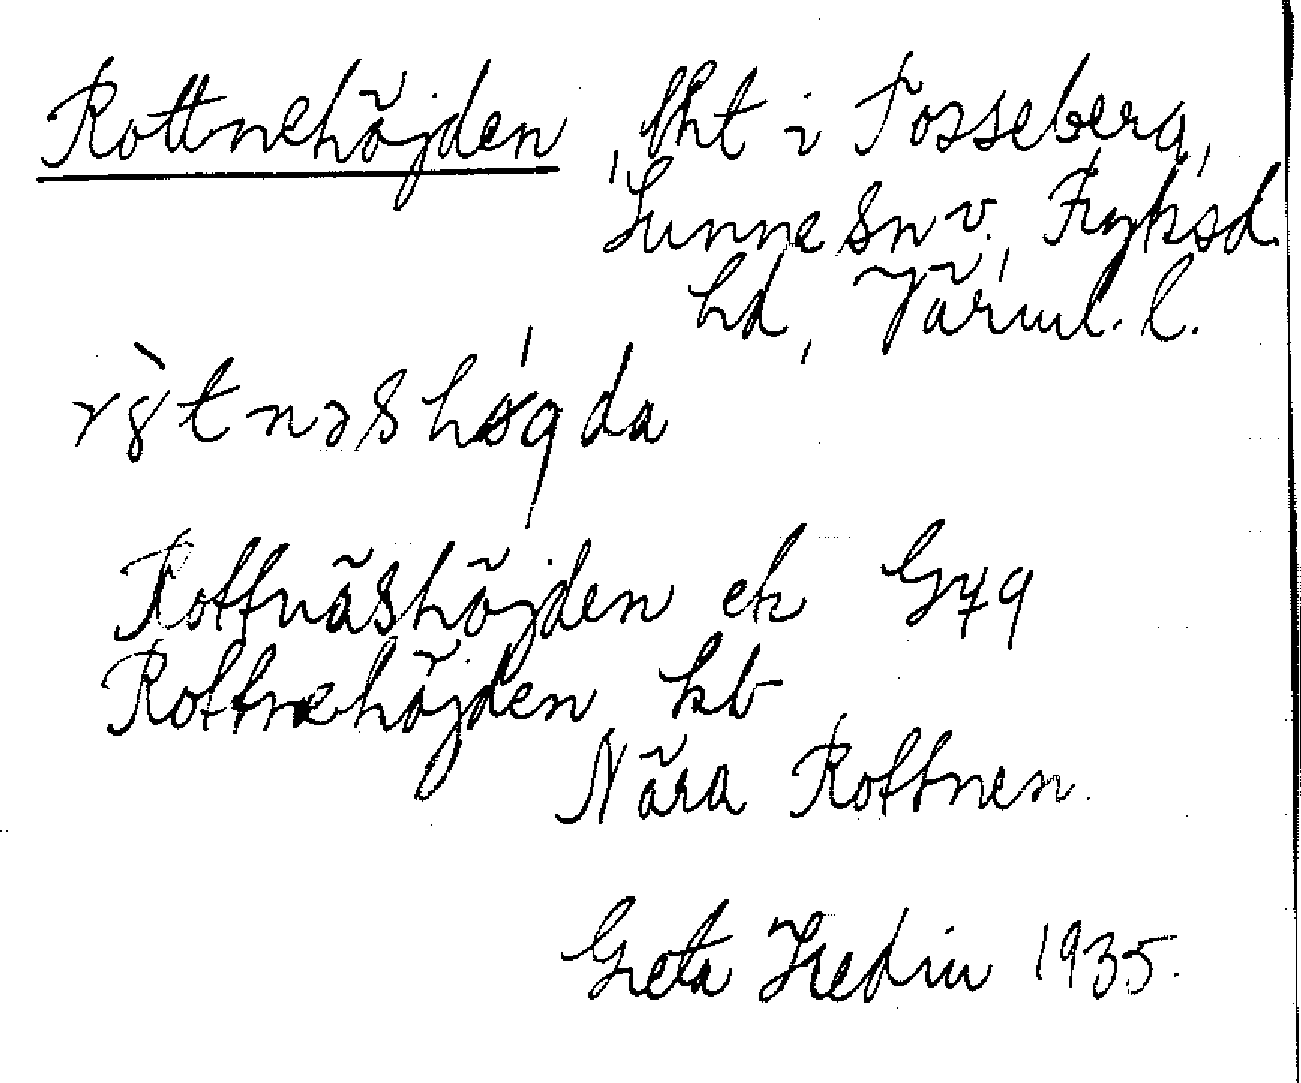 Rottnehöjden, lht i Tosseberg,
Sunne sn v. Fryksd.
hd, Värml. l.
Rottnäshöjden ek G79
Rottnehöjden kb
Nära Rottnen.
Greta Hedin 1935.